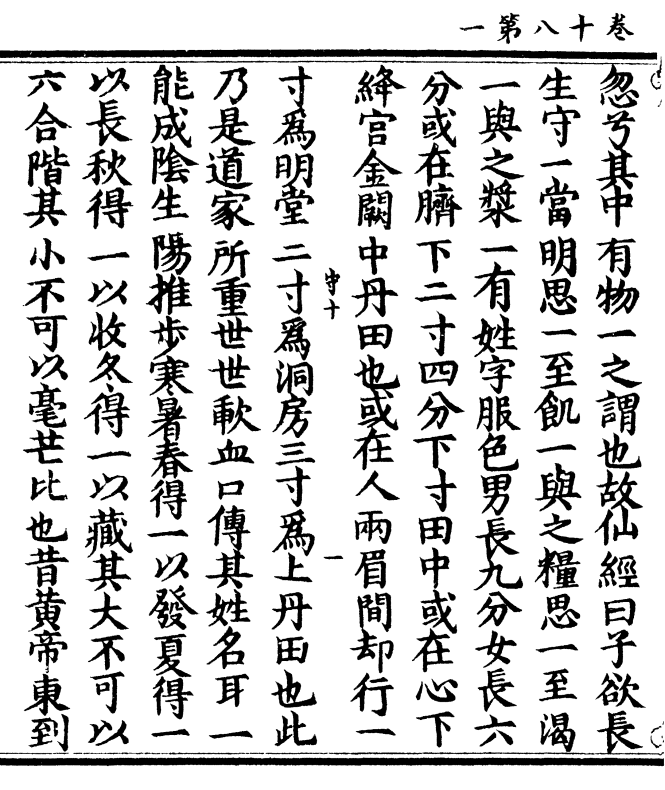 卷十八第一
忽兮其中有物一之謂也故仙經曰子欲長
生守一當明思一至飢一與之糧思一至渴
一與之漿一有姓字服色男長九分女長六
分或在臍下二寸四分下寸田中或在心下
絳宫金闕中丹田也或在人兩眉間却行一
守十 一
寸爲明堂二寸爲洞房三寸爲上丹田也此
乃是道家所重世世歃血口傳其姓名耳一
能成陰生陽推步寒暑春得一以發夏得一
以長秋得一以收冬得一以藏其大不可以
六合階其小不可以毫芒比也昔黄帝東到